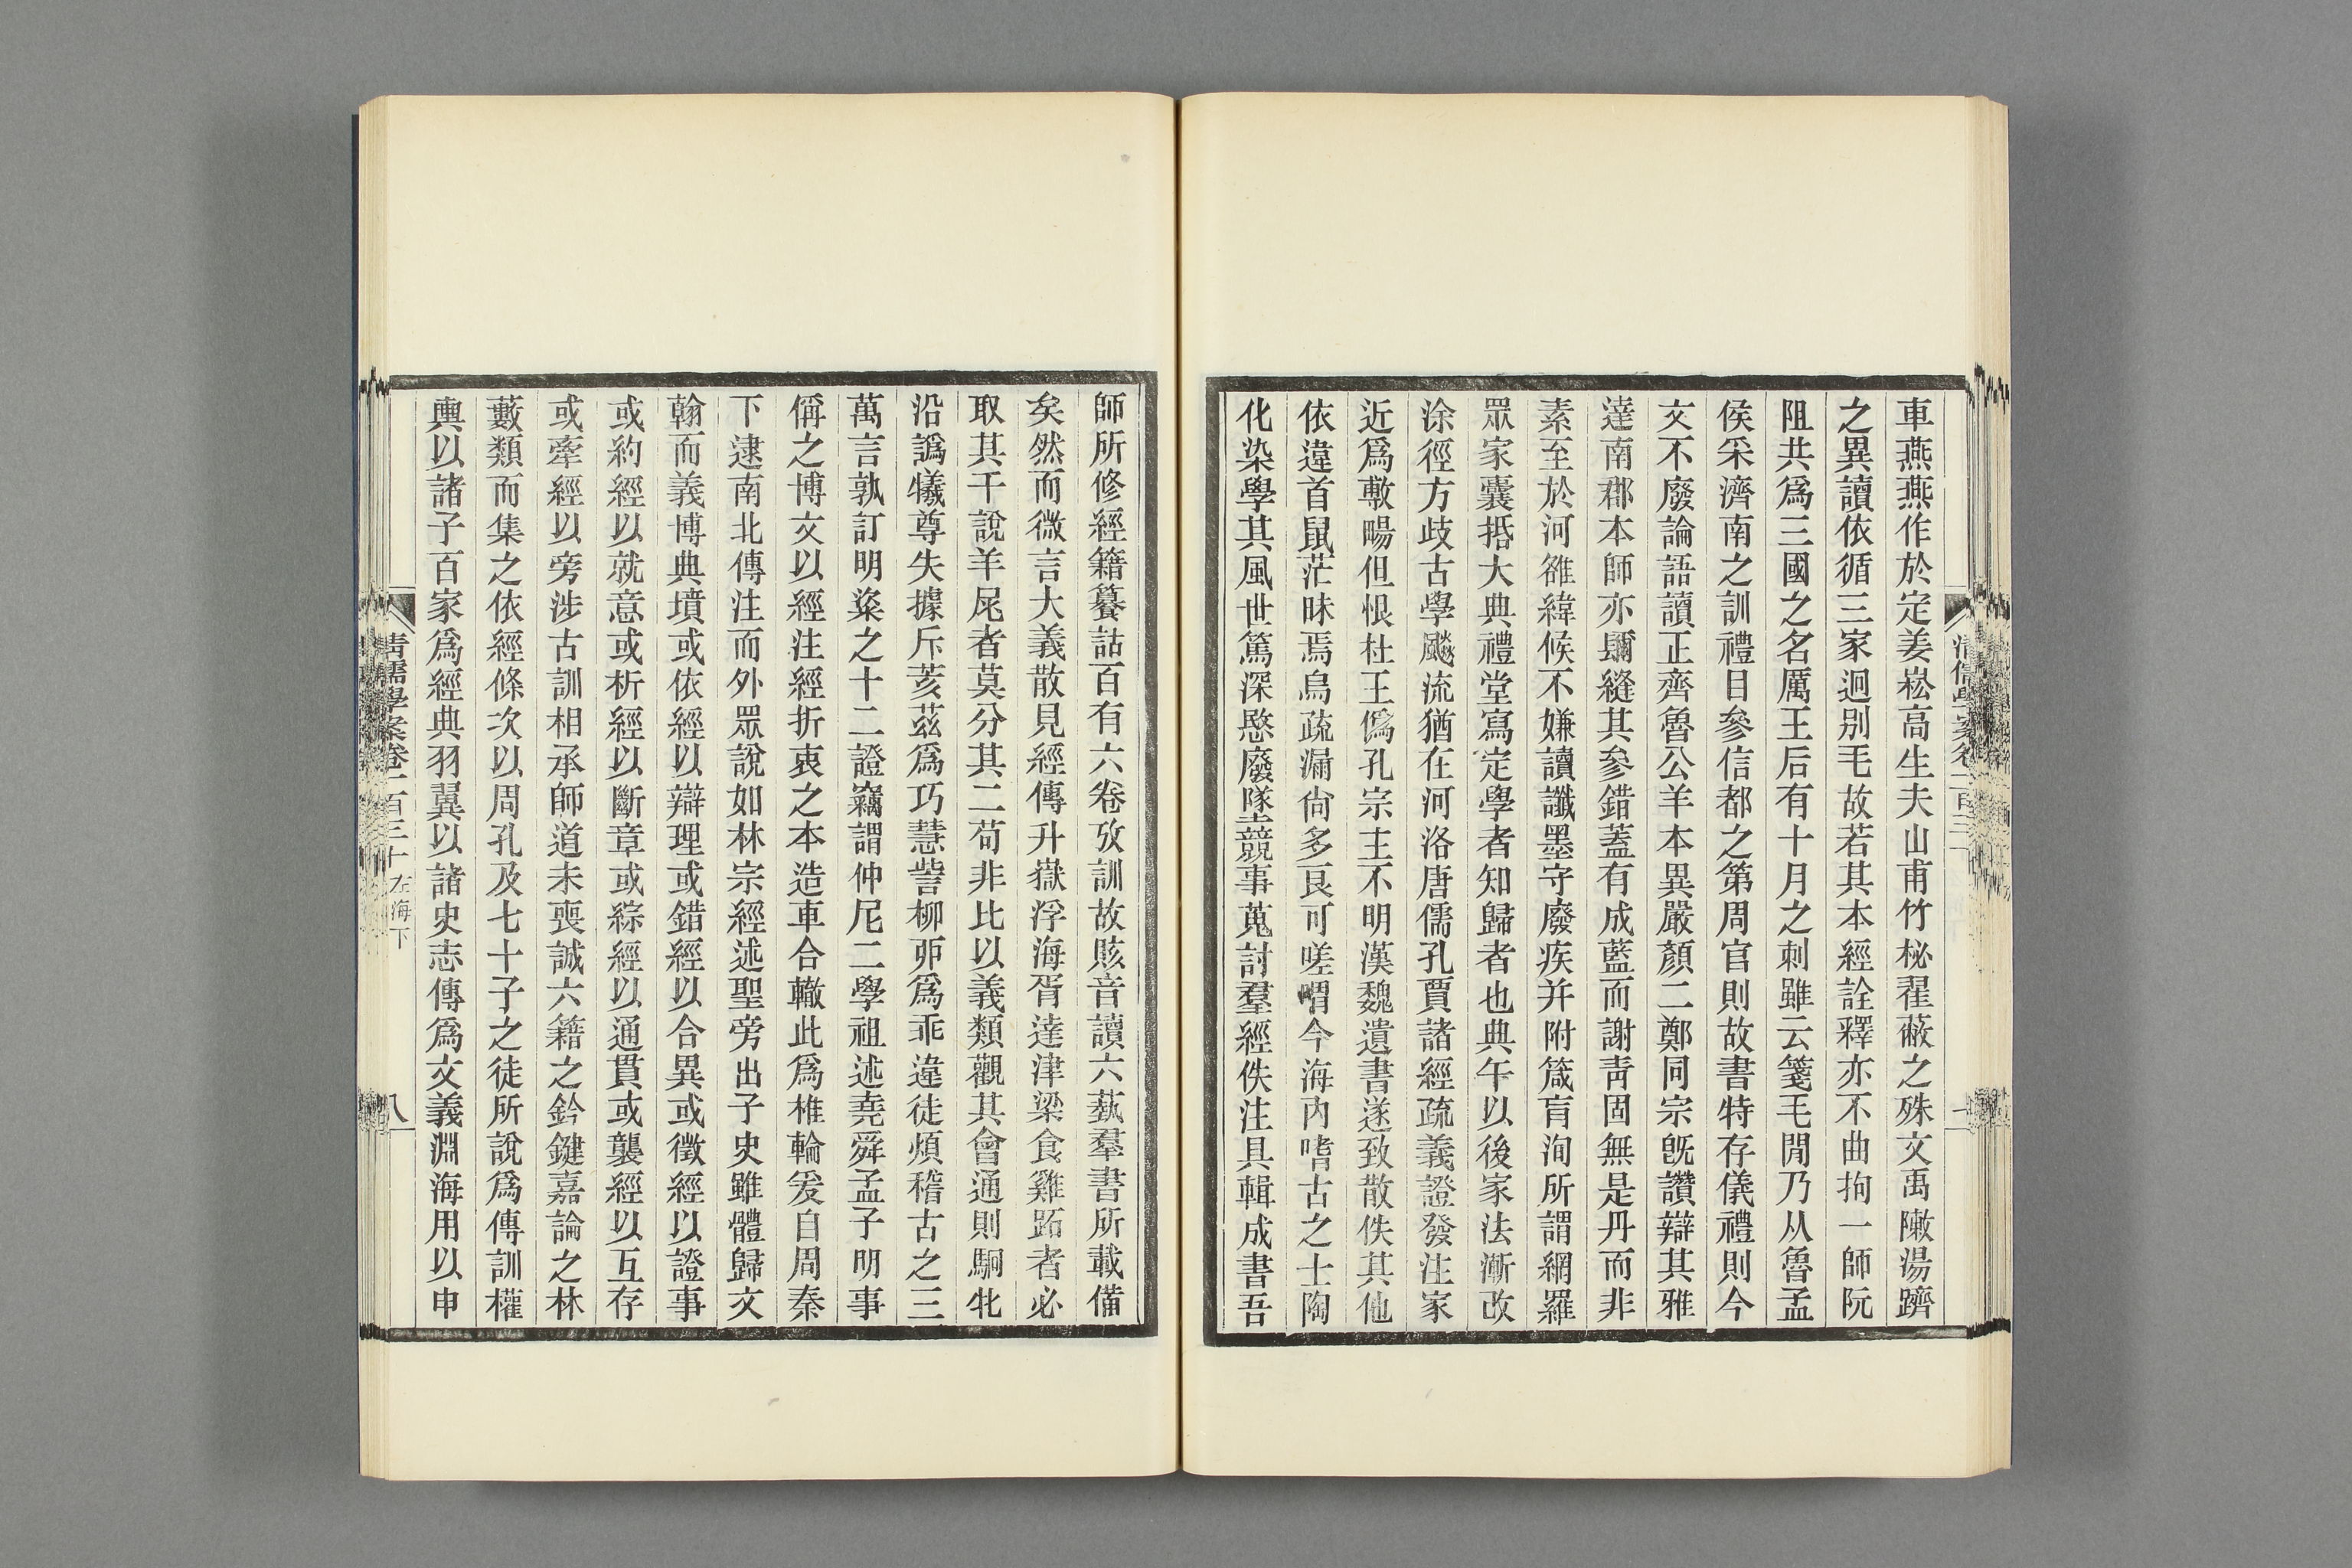 車燕燕作於定姜崧高生夫山甫竹柲翟蔽之殊文禹敶湯躋
之異讀依循三家迥别毛故若其本經詮釋亦不曲拘一師阮
阻共爲三國之名厲王后有十月之刺雖云箋毛閒乃从魯孟
侯采濟南之訓禮目參信都之第周官則故書特存儀禮則今
文不廢論語讀正齊魯公羊本異嚴顏二鄭同宗旣讚辯其雅
達南郡本師亦㓕縫其參錯蓋有成藍而謝靑固無是丹而非
素至於河雒緯候不嫌讀讖墨守廢疾并附箴肓洵所謂網羅
眾家囊括大典禮堂寫定學者知歸者也典午以後家法漸改
涂徑方歧古學飈流猶在河洛唐儒孔賈諸經疏義證發注家
近爲敷暢但恨杜王僞孔宗主不明漢魏遺書遂致散佚其他
依違首鼠茫昧焉烏疏漏尙多良可嗟喟今海內嗜古之士陶
化染學其風世篤深愍廢隊競事蒐討羣經佚注具輯成書吾
師所修經籍籑詁百有六卷攷訓故賅音讀六蓺羣書所載備
矣然而微言大義散見經傳升嶽浮海胥達津梁食雞跖者必
取其千說羊㞑者莫分其二苟非比以義類觀其會通則駉牝
沿譌犧尊失據斥荄茲爲巧慧訾柳丣爲乖違徒煩稽古之三
萬言孰訂明粢之十二證竊謂仲尼二學祖述堯舜孟子明事
偁之博文以經注經折衷之本造車合轍此爲椎輪爰自周秦
下逮南北傳注而外眾說如林宗經述聖旁出子史雖體歸文
翰而義博典墳或依經以辯理或錯經以合異或徵經以證事
或約經以就意或析經以斷章或綜經以通貫或襲經以互存
或牽經以旁涉古訓相承師道未喪誠六籍之鈐鍵嘉論之林
藪類而集之依經條次以周孔及七十子之徒所說爲傳訓權
輿以諸子百家爲經典羽翼以諸史志傳爲文義淵海用以申
清儒學案卷一百三十 左海下
八